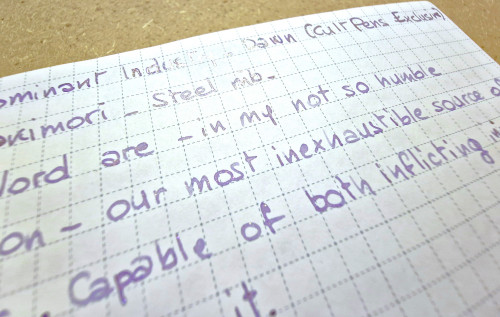 ominant Indus Dawn (Cult Pens Exclusive)
okimori - Steel nib.
Word are - in my not so humble
on - our most inexhaustible source o
. Capable of both inflicting i
it.